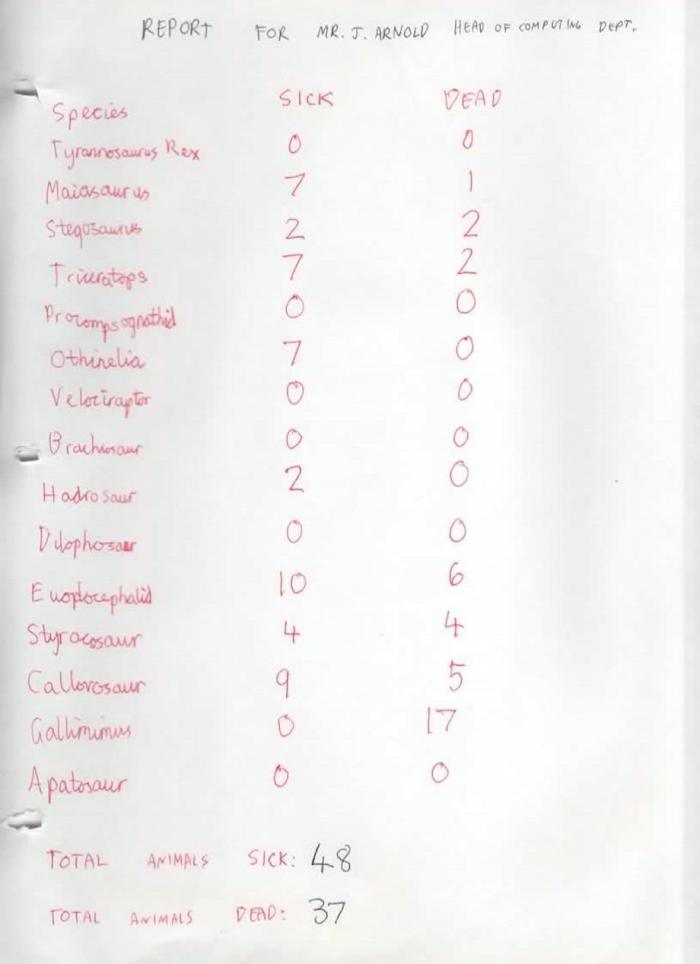 REPORT FOR MR. J. ARNOLD HEAD OF COMPUTING DEPT.
Species SICK DEAD
Tyrannosaurus Rex 0 0
Maiasaurus 7 1
Stegosaurus 2 2
Triceratops 7 2
Procompsognathid 0 0
Othinelia 7 0
Velociraptor 0 0
Brachiosaur 0 0
Hadrosaur 2 0
Dilophosaur 0 0
Euoplocephalid 10 6
Styracosaur 4 4
Callovosaur 9 5
Gallimimus 0 17
Apatosaur 0 0
TOTAL ANIMALS SICK: 48
TOTAL ANIMALS DEAD: 37